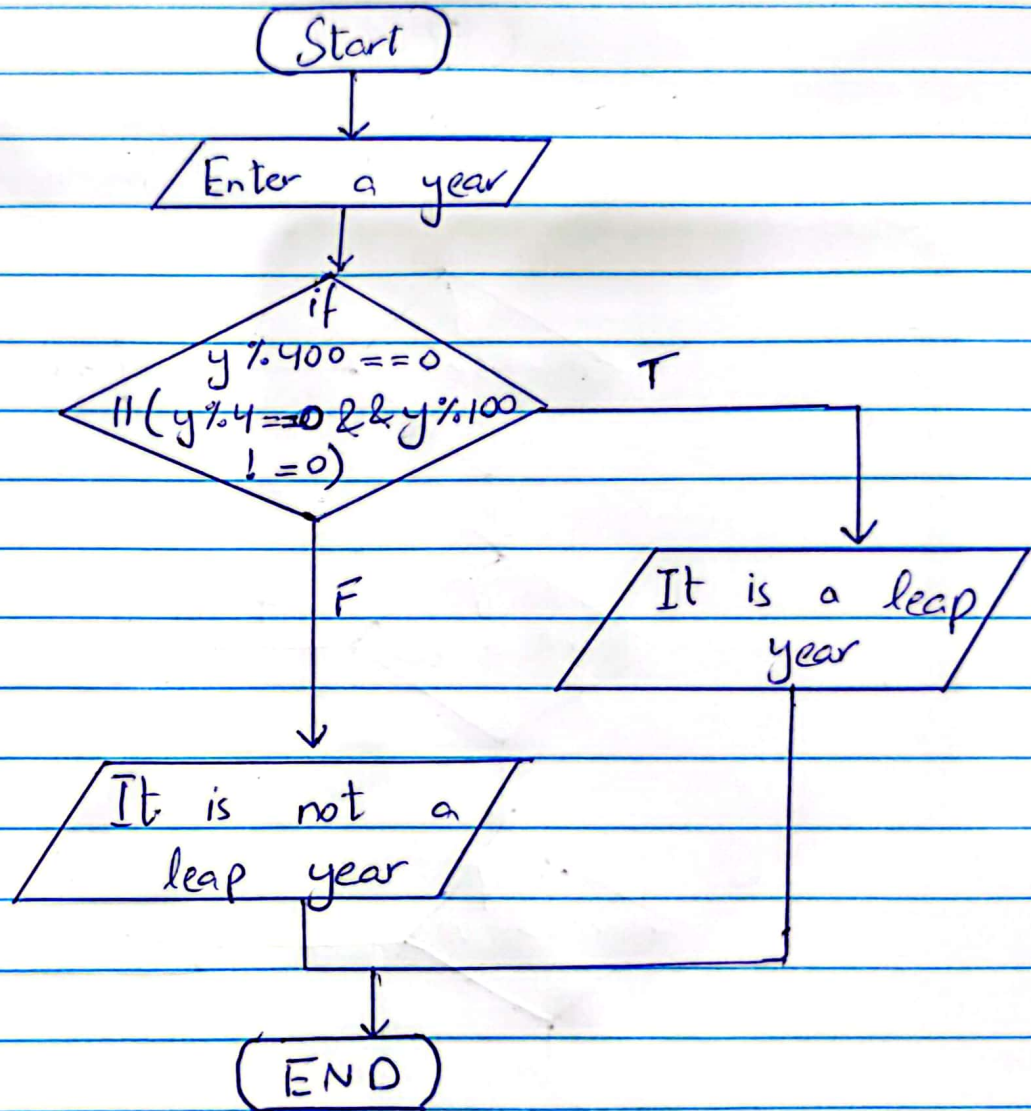 Start
Enter a year
if
y%400 ==0
T
||(y%4==0 && y%100
!=0)
F
It is a leap
year
It is not a
leap year
END